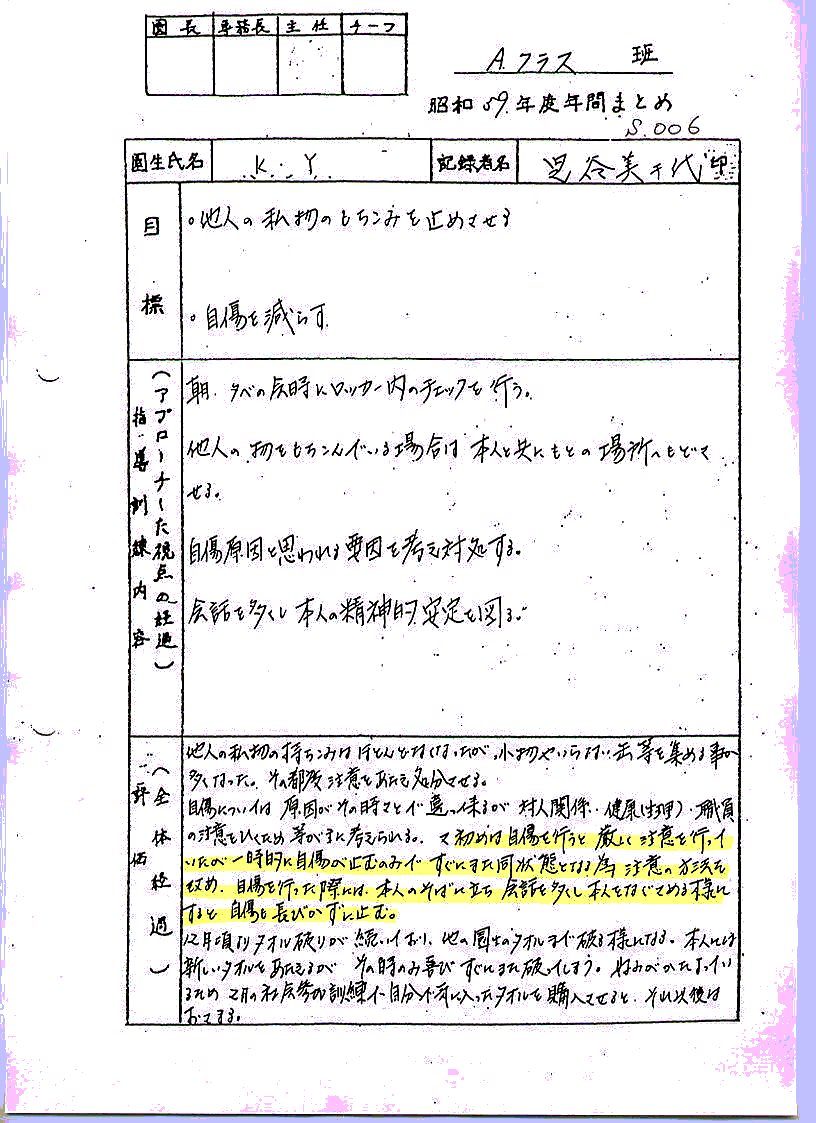 園長 専務長 主任 チーフ
A.クラス 班
昭和59年度年間まとめ
S.006
園生氏名 K.Y 記録者名 美千代 印
目標
。他人の私物のもちこみを止めさせる
。自傷を減らす
指導訓練内容
(アプローチした視点の経過)
朝.夕べの点時にロッカー内のチェックを行う。
他人の物をもちこんでいる場合は本人と共にもとの場所へもどさ
せる。
自傷原因と思われる要因を考え対処する。
会話を多くし本人の精神的安定を図る。
評価
(全体経過)
他人の私物の持ちこみはほとんどなくなったが、小物やいらない缶等を集める事が
多くなった。その都度注意をあたえ処分させる。
自傷については原因がその時々で違って来るが対人関係・健康(生理)・職員
の注意をひくため等が主に考えられる。初めは自傷を行うと厳しく注意を行って
いたが一時的に自傷が止むのみですぐにまた同状態となる為注意の方法を
改め、自傷を行った際には、本人のそばに立ち会話を多くし本人をなぐさめる様に
すると自傷も長びかずに止む。
12月頃よりタオル破りが続いており、他の園生のタオルまで破る様になる。本人には
新しいタオルをあたえるが その時のみ喜びすぐにまた破ってしまう。
るため2月の社会参加訓練で自分で気に入ったタオルを購入させると、それ以後は
おさまる。